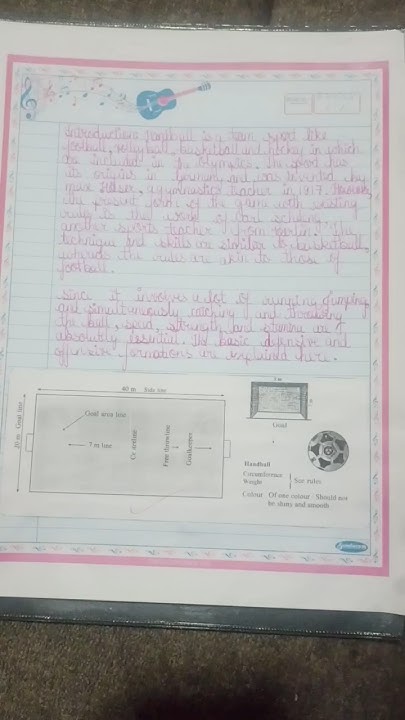 Introduction: Handball is a team sport like
football, volleyball, basketball and hockey in which
are included in the Olympics. The sport has
its origins in Germany and was invented by
max Heiser, a gymnastics teacher in 1917. However,
the present form of the game with existing
rules is the work of Carl schelenz,
another sports teacher from berlin. The
technique and skills are similar to basketball,
whereas the rules are akin to those of
football.
since it involves a lot of running, jumping
and simultaneously catching and throwing
the ball, speed, strength and stamina are
absolutely essential. The basic defensive and
offensive formations are explained here.
40 m Side line
20 m Goal line
Goal area line
7 m line
Centreline
Free throwline
Goalkeeper
3 m
Goal
Handball
Circumference
Weight
See rules
Colour Of one colour Should not
be shiny and smooth
Sundaram